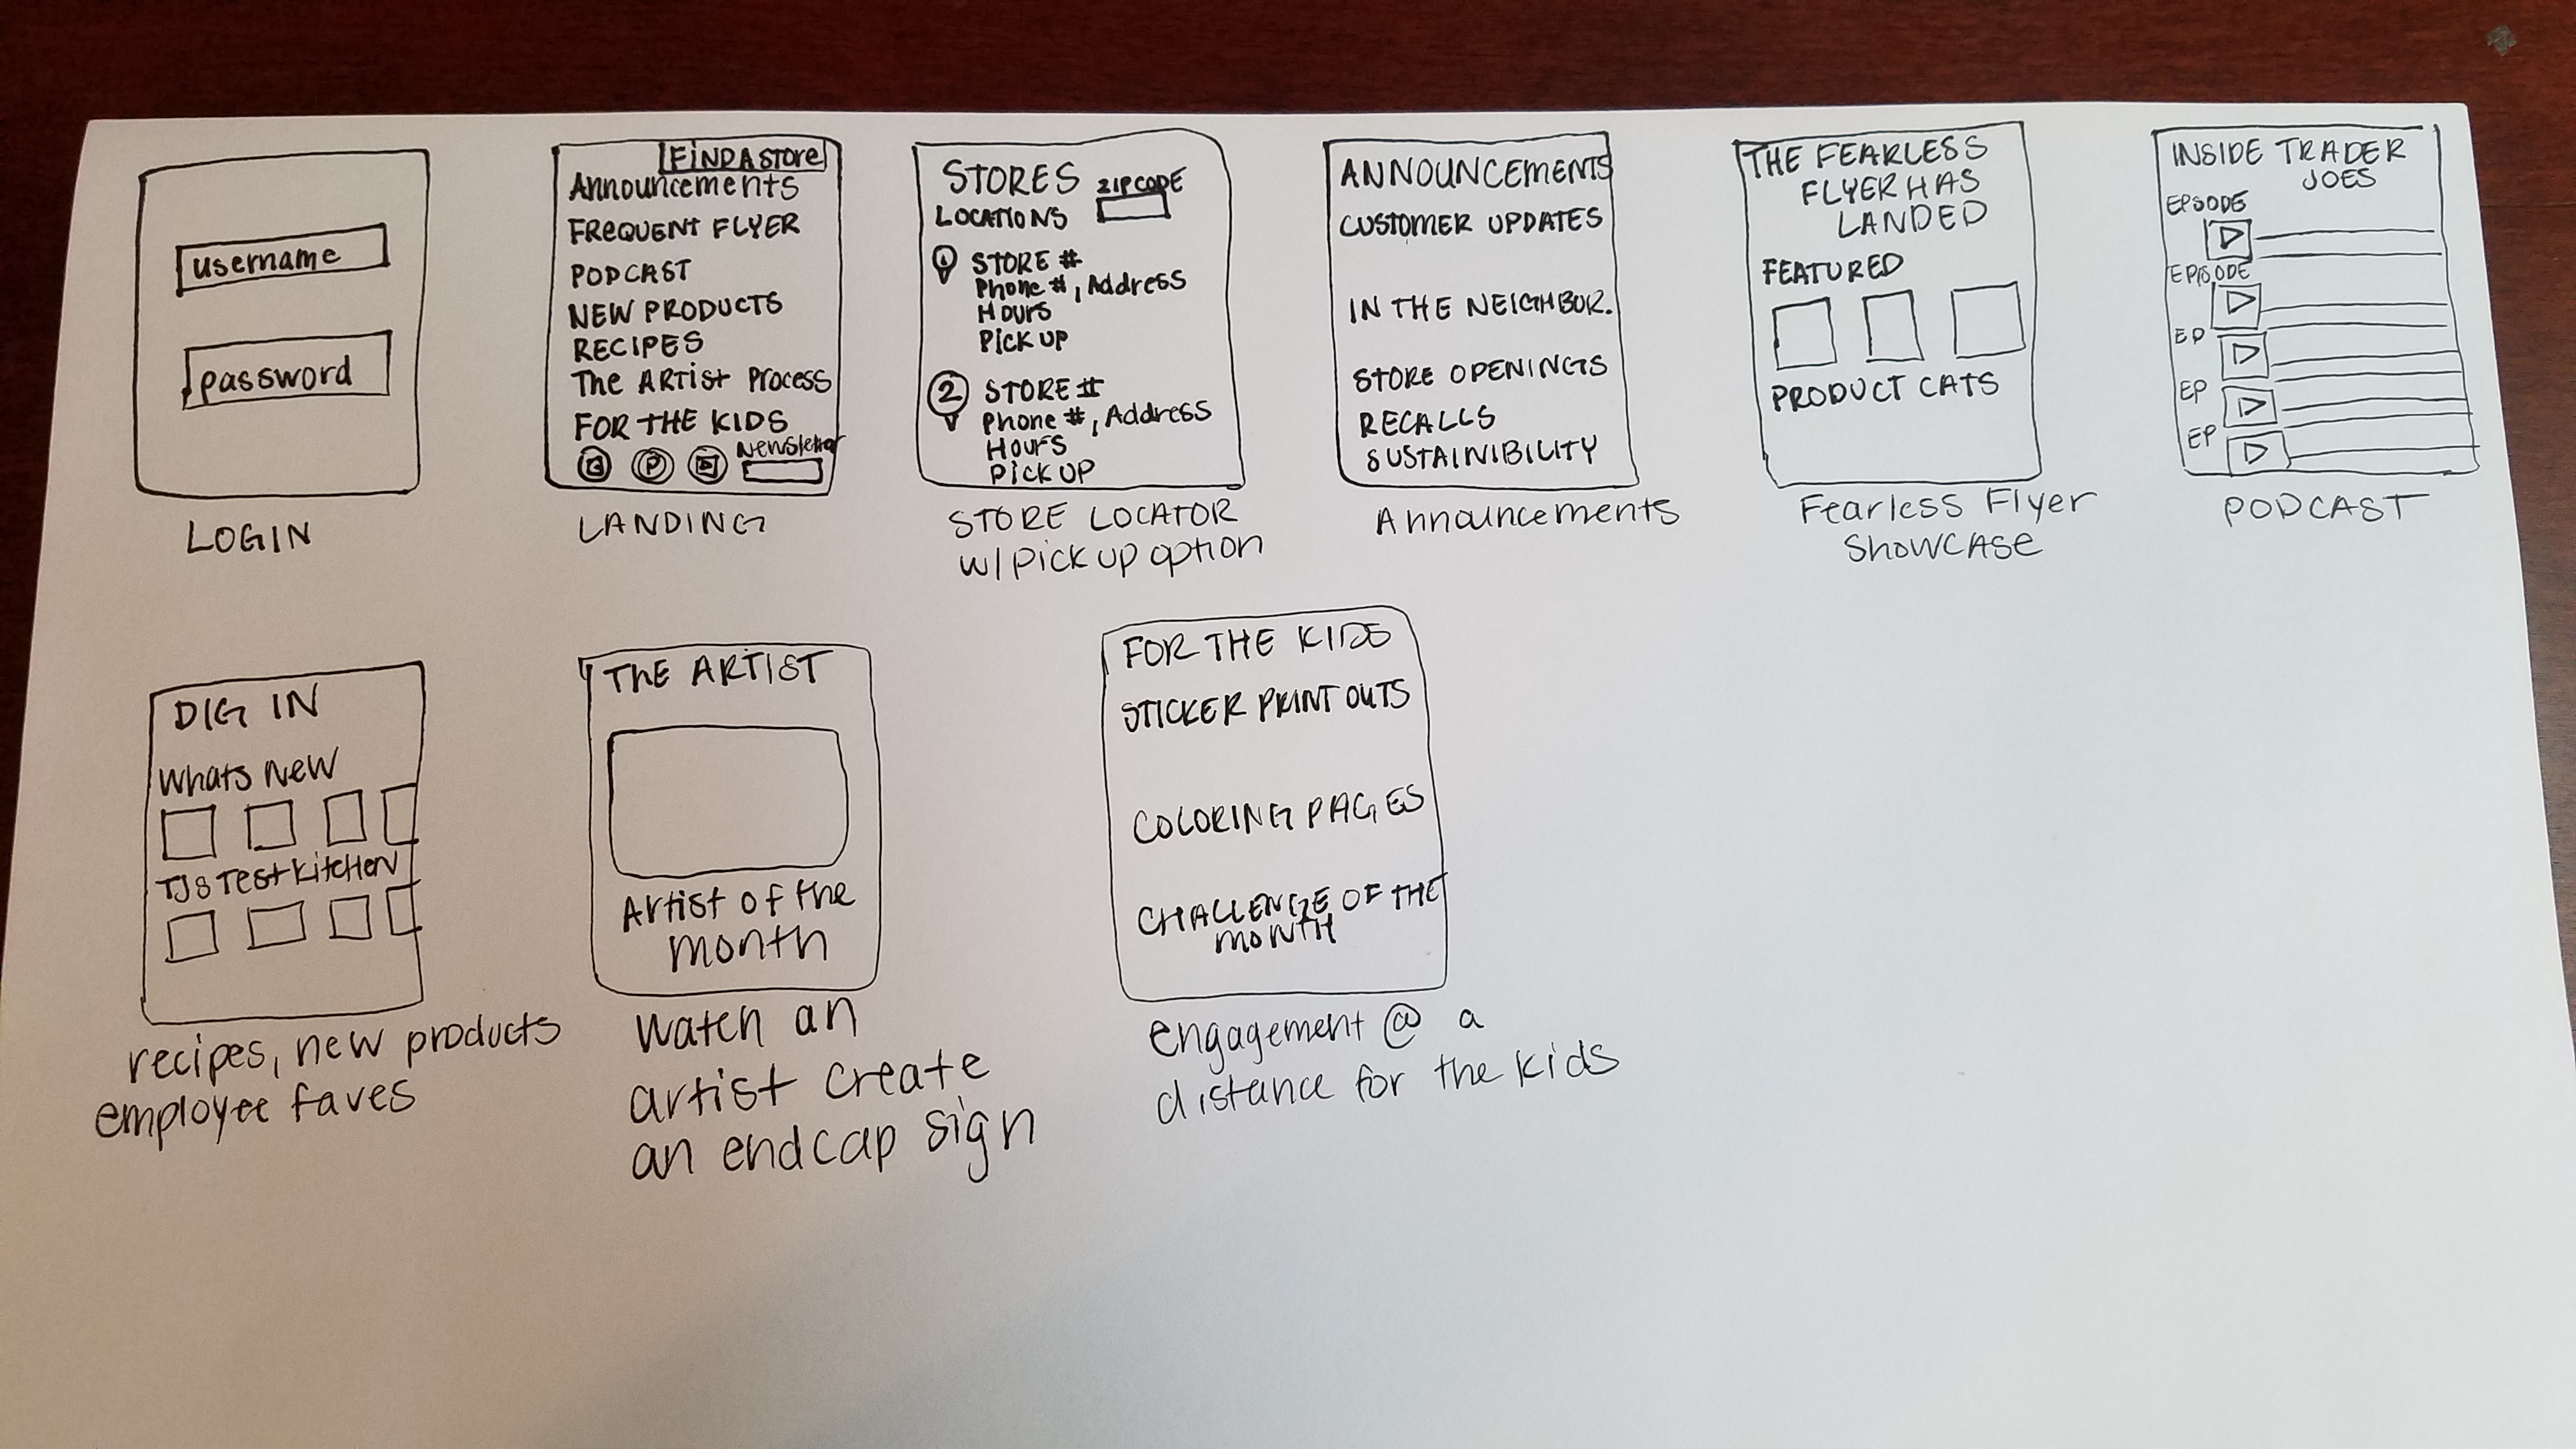 username
password
LOGIN
FIND A STORE
Announcements
FREQUENT FLYER
PODCAST
NEW PRODUCTS
RECIPES
The ARTist PROCESS
FOR THE KIDS
Newsletter
P
LANDING
STORES
ZIPCODE
LOCATIONS
1 STORE #
Phone #, Address
HOURS
PICK UP
2 STORE #
Phone #, Address
HOURS
PICK UP
STORE LOCATOR
w/ pick up option
ANNOUNCEMENTS
CUSTOMER UPDATES
IN THE NEIGHBOR.
STORE OPENINGS
RECALLS
SUSTAINIBILITY
Announcements
THE FEARLESS
FLYER HAS
LANDED
FEATURED
PRODUCT CATS
Fearless Flyer
SHOWCASE
INSIDE TRADER
JOES
EPSODE
EPISODE
EP
EP
EP
PODCAST
DIG IN
Whats New
TJs Test Kitchen
recipes, new products
employee faves
THE ARTIST
Artist of the
month
Watch an
artist create
an endcap sign
FOR THE KIDS
STICKER PRINT OUTS
COLORING PAGES
CHALLENGE OF THE
MONTH
engagement @ a
distance for the kids